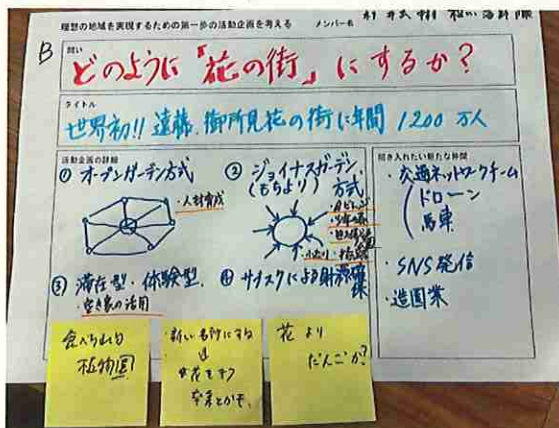 理想の地域を実現するための第一歩の活動企画を考える
メンバー名
B
問い
どのように『花の街』にするか?
タイトル
世界初!! 遠藤、御所見花の街に年間 1200 万人
活動企画の詳細
① オープンガーデン方式
・人材育成
② ジョイナスガーデン
(もちより) 方式
③ 滞在型・体験型
・空き家の活用
④ サイスクによる財源確保
招き入れたい新たな仲間
・交通ネットワークチーム
ドローン
馬車
・SNS発信
・造園業
食べられる
植物園
・新しい名所にする
花より
だんごか?